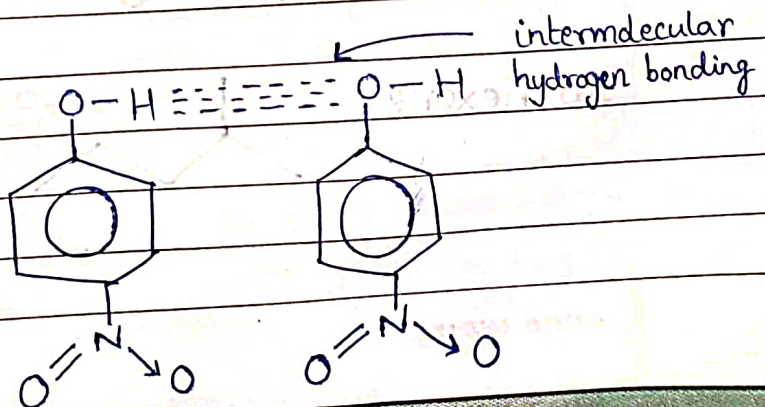 intermolecular
hydrogen bonding
O-H O-H
N N
O O O O